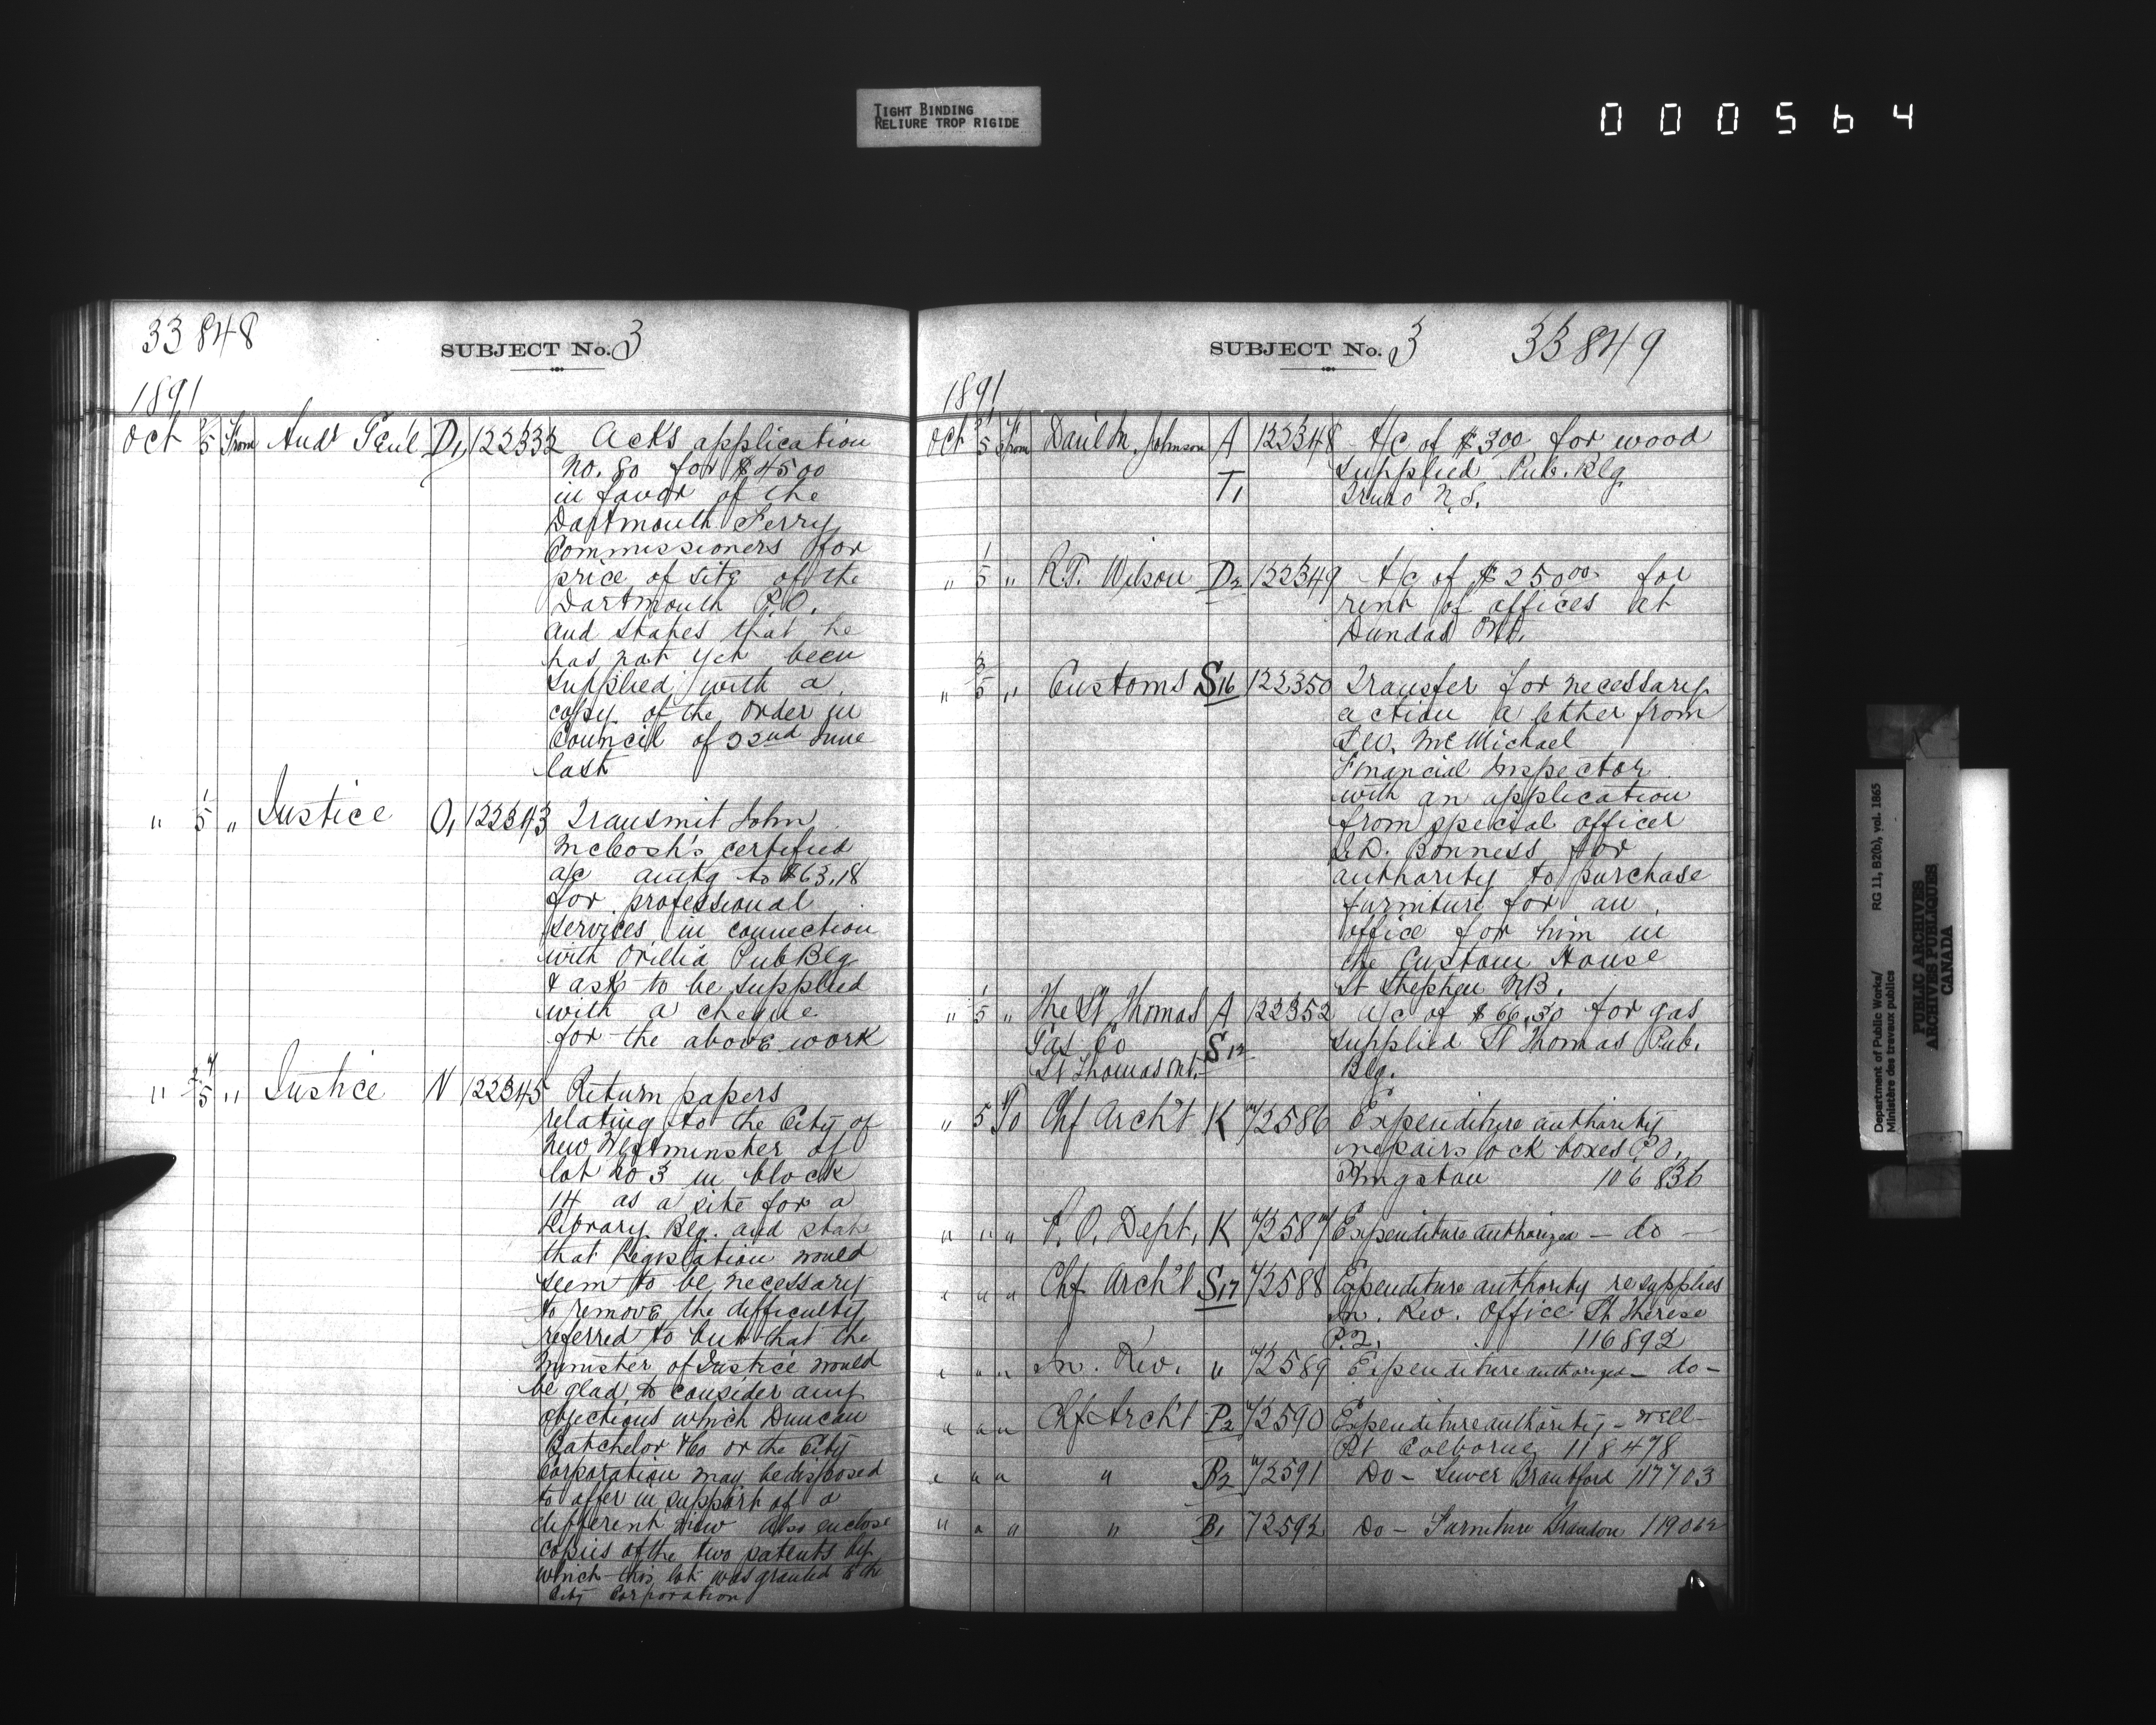 TIGHT BINDING
RELIURE TROP RIGIDE
000564
33848
SUBJECT No. 3
1891
Oct 2/5 From Audr Genl D1 122332 Acks application
No. 80 for $4500
in favor of the
Dartmouth Ferry
Commissioners for
price of site of the
Dartmouth P.O.
and states that he
has not yet been
supplied with a
copy of the order in
Council of 22nd June
last
" 1/5 " Justice O1 122343 Transmit John
McCosh's certified
a/c amtg to $63.18
for professional
services in connection
with Orillia Pub Blg
& ask to be supplied
with a cheque
for the above work
" 2/5 " Justice N 122345 Return papers
relating to the City of
New Westminster of
lot No 3 in block
14 as a site for a
Library Blg. and state
that legislation would
seem to be necessary
to remove the difficulty
referred to but that the
Minister of Justice would
be glad to consider any
objections which Duncan
Batchelor & Co or the City
Corporation may be disposed
to offer in support of a
different view also enclose
copies of the two patents by
which this lot was granted to the
City Corporation
SUBJECT No. 3
33849
1891
Oct 5 From Danl M. Johnson A 122348 A/c of $300 for wood
T1 supplied Pub. Blg
Truro N.S.
" 1/5 " R.T. Wilson D2 122349 A/c of $25000 for
rent of offices at
Dundas Ont.
" 3/5 " Customs S16 122350 Transfer for necessary
action a letter from
McMichael
Financial Inspector
with an application
from special officer
Bonness for
authority to purchase
furniture for an
office for him in
the Custom House
St Stephen N.B.
" 1/5 " The St Thomas A 122352 a/c of $66.30 for gas
Gas Co S12 supplied St Thomas Pub.
St Thomas Ont. Blg.
" 5 To Chf Arch't K 72586 Expenditure authority
repairs lock boxes P.O.
Kingston 106836
" " " P.O. Dept. K 72587 Expenditure authorized - do -
" " " Chf Arch't S17 72588 Expenditure authority re supplies
In. Rev. Office St Therese
P.Q. 116892
" " " In. Rev. " 72589 Expenditure authorized - do -
" " " Chf Arch't P2 72590 Expenditure authority - well -
Pt Colborne 118478
" " " " B2 72591 Do - Sewer Brantford 117703
" " " " B1 72592 Do - Furniture Brandon 119062
Department of Public Works/
Ministère des travaux publics
RG 11, B2(b), vol. 1865
PUBLIC ARCHIVES
ARCHIVES PUBLIQUES
CANADA